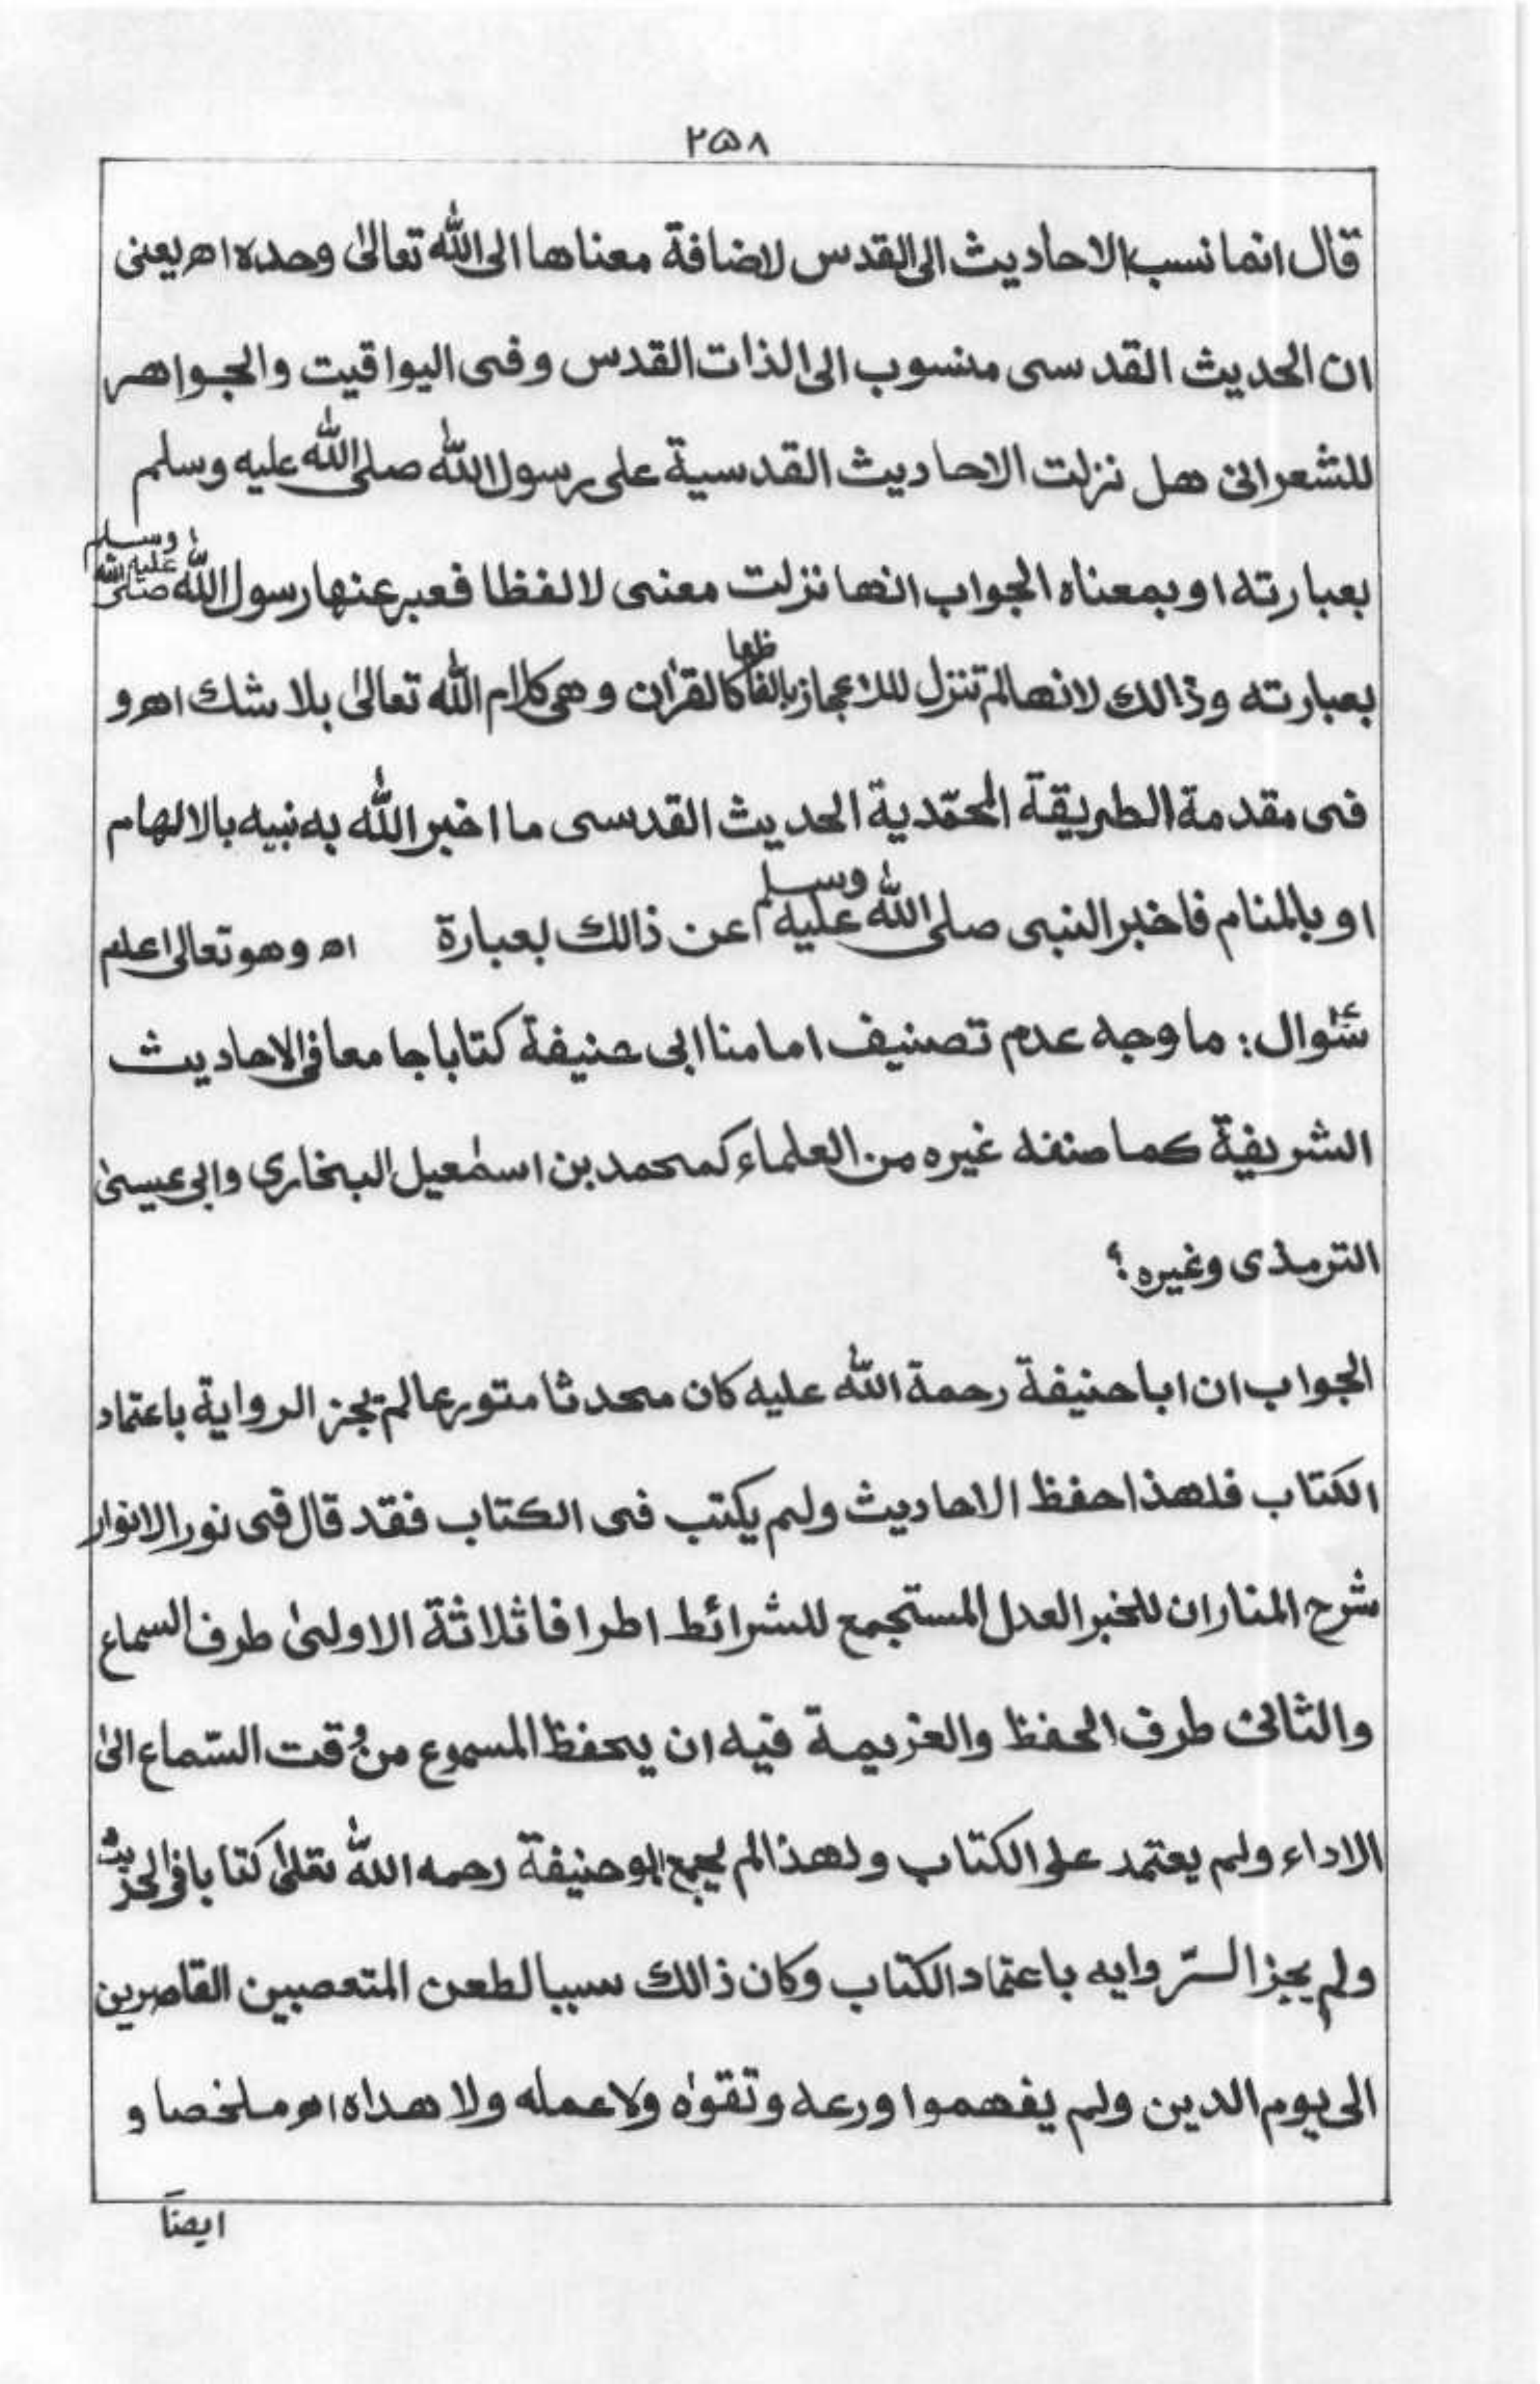 ۲۵۸
قال انما نسب الاحاديث الى القدس لاضافة معناها الى الله تعالىٰ وحده اه يعنى
ان الحديث القدسى منسوب الى الذات القدس وفى اليواقيت والجواهر
للشعرانى هل نزلت الاحاديث القدسية على رسول الله صلى الله عليه وسلم
بعبارته او بمعناه الجواب انها نزلت معنى لا لفظا فعبر عنها رسول الله صلى الله عليه وسلم
بعبارته وذالك لانها لم تنزل للاعجاز بالفاظها كالقرٰان وهى كلام الله تعالىٰ بلا شك اه و
فى مقدمة الطريقة المحمّدية الحديث القدسى ما اخبر الله به نبيه بالالهام
او بالمنام فاخبر النبى صلى الله عليه وسلم عن ذالك بعبارة اه وهو تعالى اعلم
سئوال: ما وجه عدم تصنيف امامنا ابى حنيفة كتابا جامعا فى الاحاديث
الشريفة كما صنفه غيره من العلماء كمحمد بن اسمٰعيل البخارى وابى عيسىٰ
الترمذى وغيره؟
الجواب ان ابا حنيفة رحمة الله عليه كان محدثا متورعا لم يجز الرواية باعتماد
الكتاب فلهذا حفظ الاحاديث ولم يكتب فى الكتاب فقد قال فى نور الانوار
شرح المنار ان للخبر العدل المستجمع للشرائط اطرافا ثلاثة الاولىٰ طرف السماع
والثانى طرف الحفظ والعزيمة فيه ان يحفظ المسموع من وقت السّماع الىٰ
الاداء ولم يعتمد على الكتاب ولهذا لم يجمع ابو حنيفة رحمه الله تعالىٰ كتابا فى الحديث
ولم يجز الرّوايه باعتماد الكتاب وكان ذالك سببا لطعن المتعصبين القاصرين
الى يوم الدين ولم يفهموا ورعه وتقوٰه ولا عمله ولا هداه اه ملخصا و
ايضاً